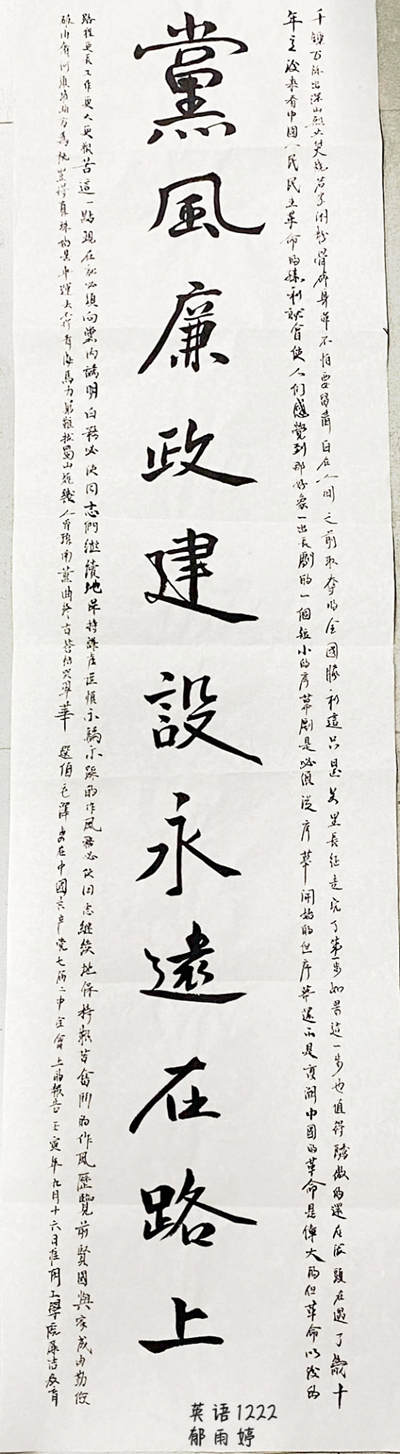 千錘万凿出深山烈火焚烧若等闲粉骨碎身渾不怕要留清白在人間 之前取夺的全國勝利這只是萬里長征走完了第一步如果這一步也值得驕傲的還在後頭在過了幾十
年之後來看中國人民民主革命的勝利就會使人们感覺到那好象一出長劇的一個短小的序幕劇是必須從序幕開始的但序幕還不是高潮中國的革命是偉大的但革命以後的
黨風廉政建設永遠在路上
路程更長工作更大更艱苦這一點現在就必須向黨内講明白務必使同志們继續地保持謙虚謹慎不驕不躁的作風務必使同志继续地保持艱苦奮鬥的作風歷覽前賢國與家成由勤儉
破由奢何須琥珀方為枕豈得真珠始是車運去不逢青海馬力窮難拔蜀山蛇幾人曾預南薰曲終古蒼梧哭翠華 選自毛澤東在中國共产党七屆二中全會上的報告 壬寅年九月十六日淮阴工學院廉洁教育
英语1222
郁雨婷